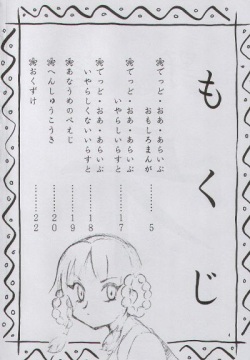 もくじ
❀でっど・おあ・あらいぶ
おもしろまんが ………5
❀でっど・おあ・あらいぶ
いやらしいらすと ………17
❀でっど・おあ・あらいぶ
いやらしくないいらすと ………18
❀あなうめのぺえじ ………19
❀へんしゅうこうき ………20
❀おくずけ ………22